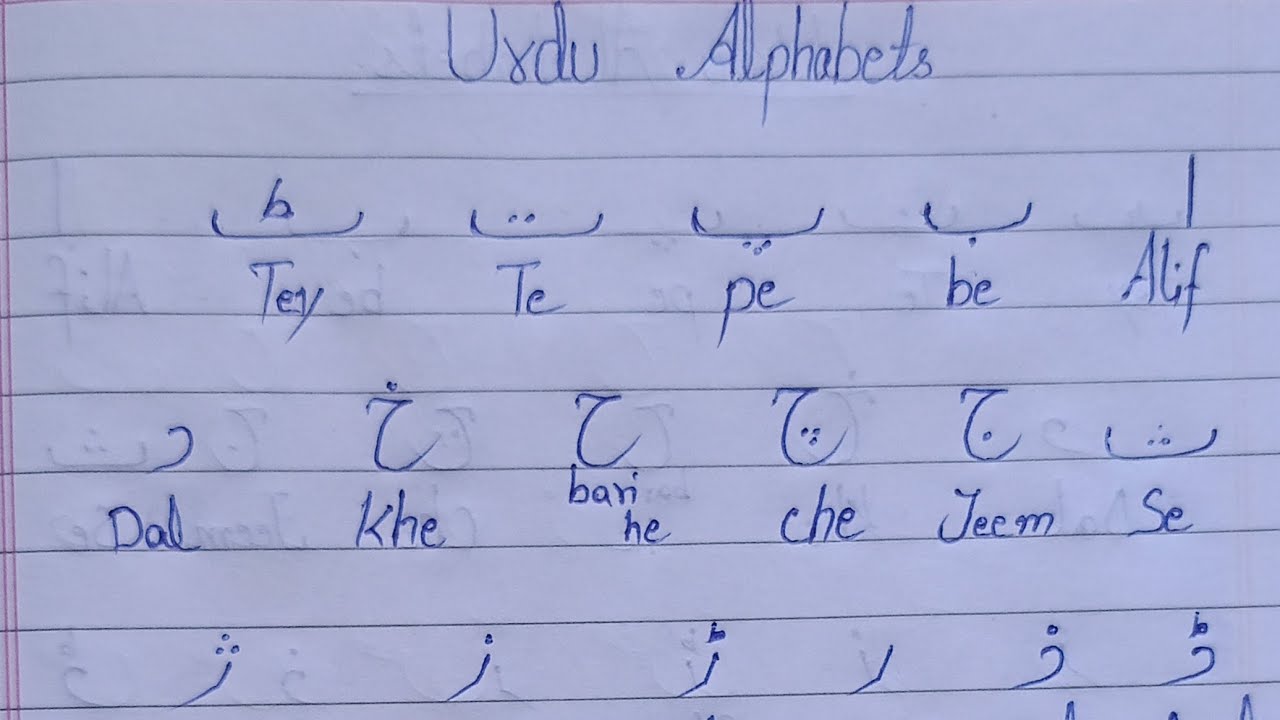 Urdu Alphabets
ا ب پ ت ٹ
Alif be pe Te Tey
ث ج چ ح خ د
Se Jeem che bari he Khe Dal
ڈ ذ ر ڑ ز ژ